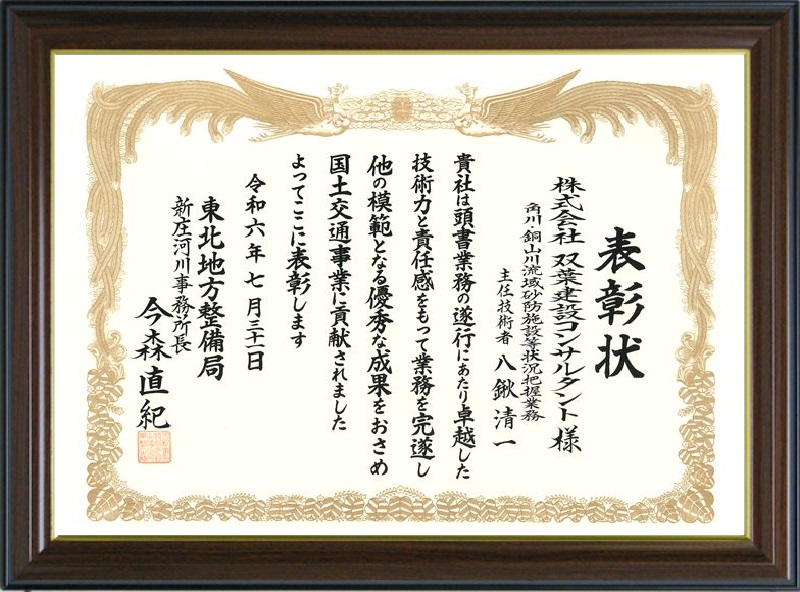 表彰状
株式会社 双葉建設コンサルタント 様
角川・銅山川流域砂防施設等状況把握業務
主任技術者 八鍬 清一
貴社は頭書業務の遂行にあたり卓越した
技術力と責任感をもって業務を完遂し
他の模範となる優秀な成果をおさめ
国土交通事業に貢献されました
よってここに表彰します
令和六年七月三十一日
東北地方整備局
新庄河川事務所長
今森 直紀